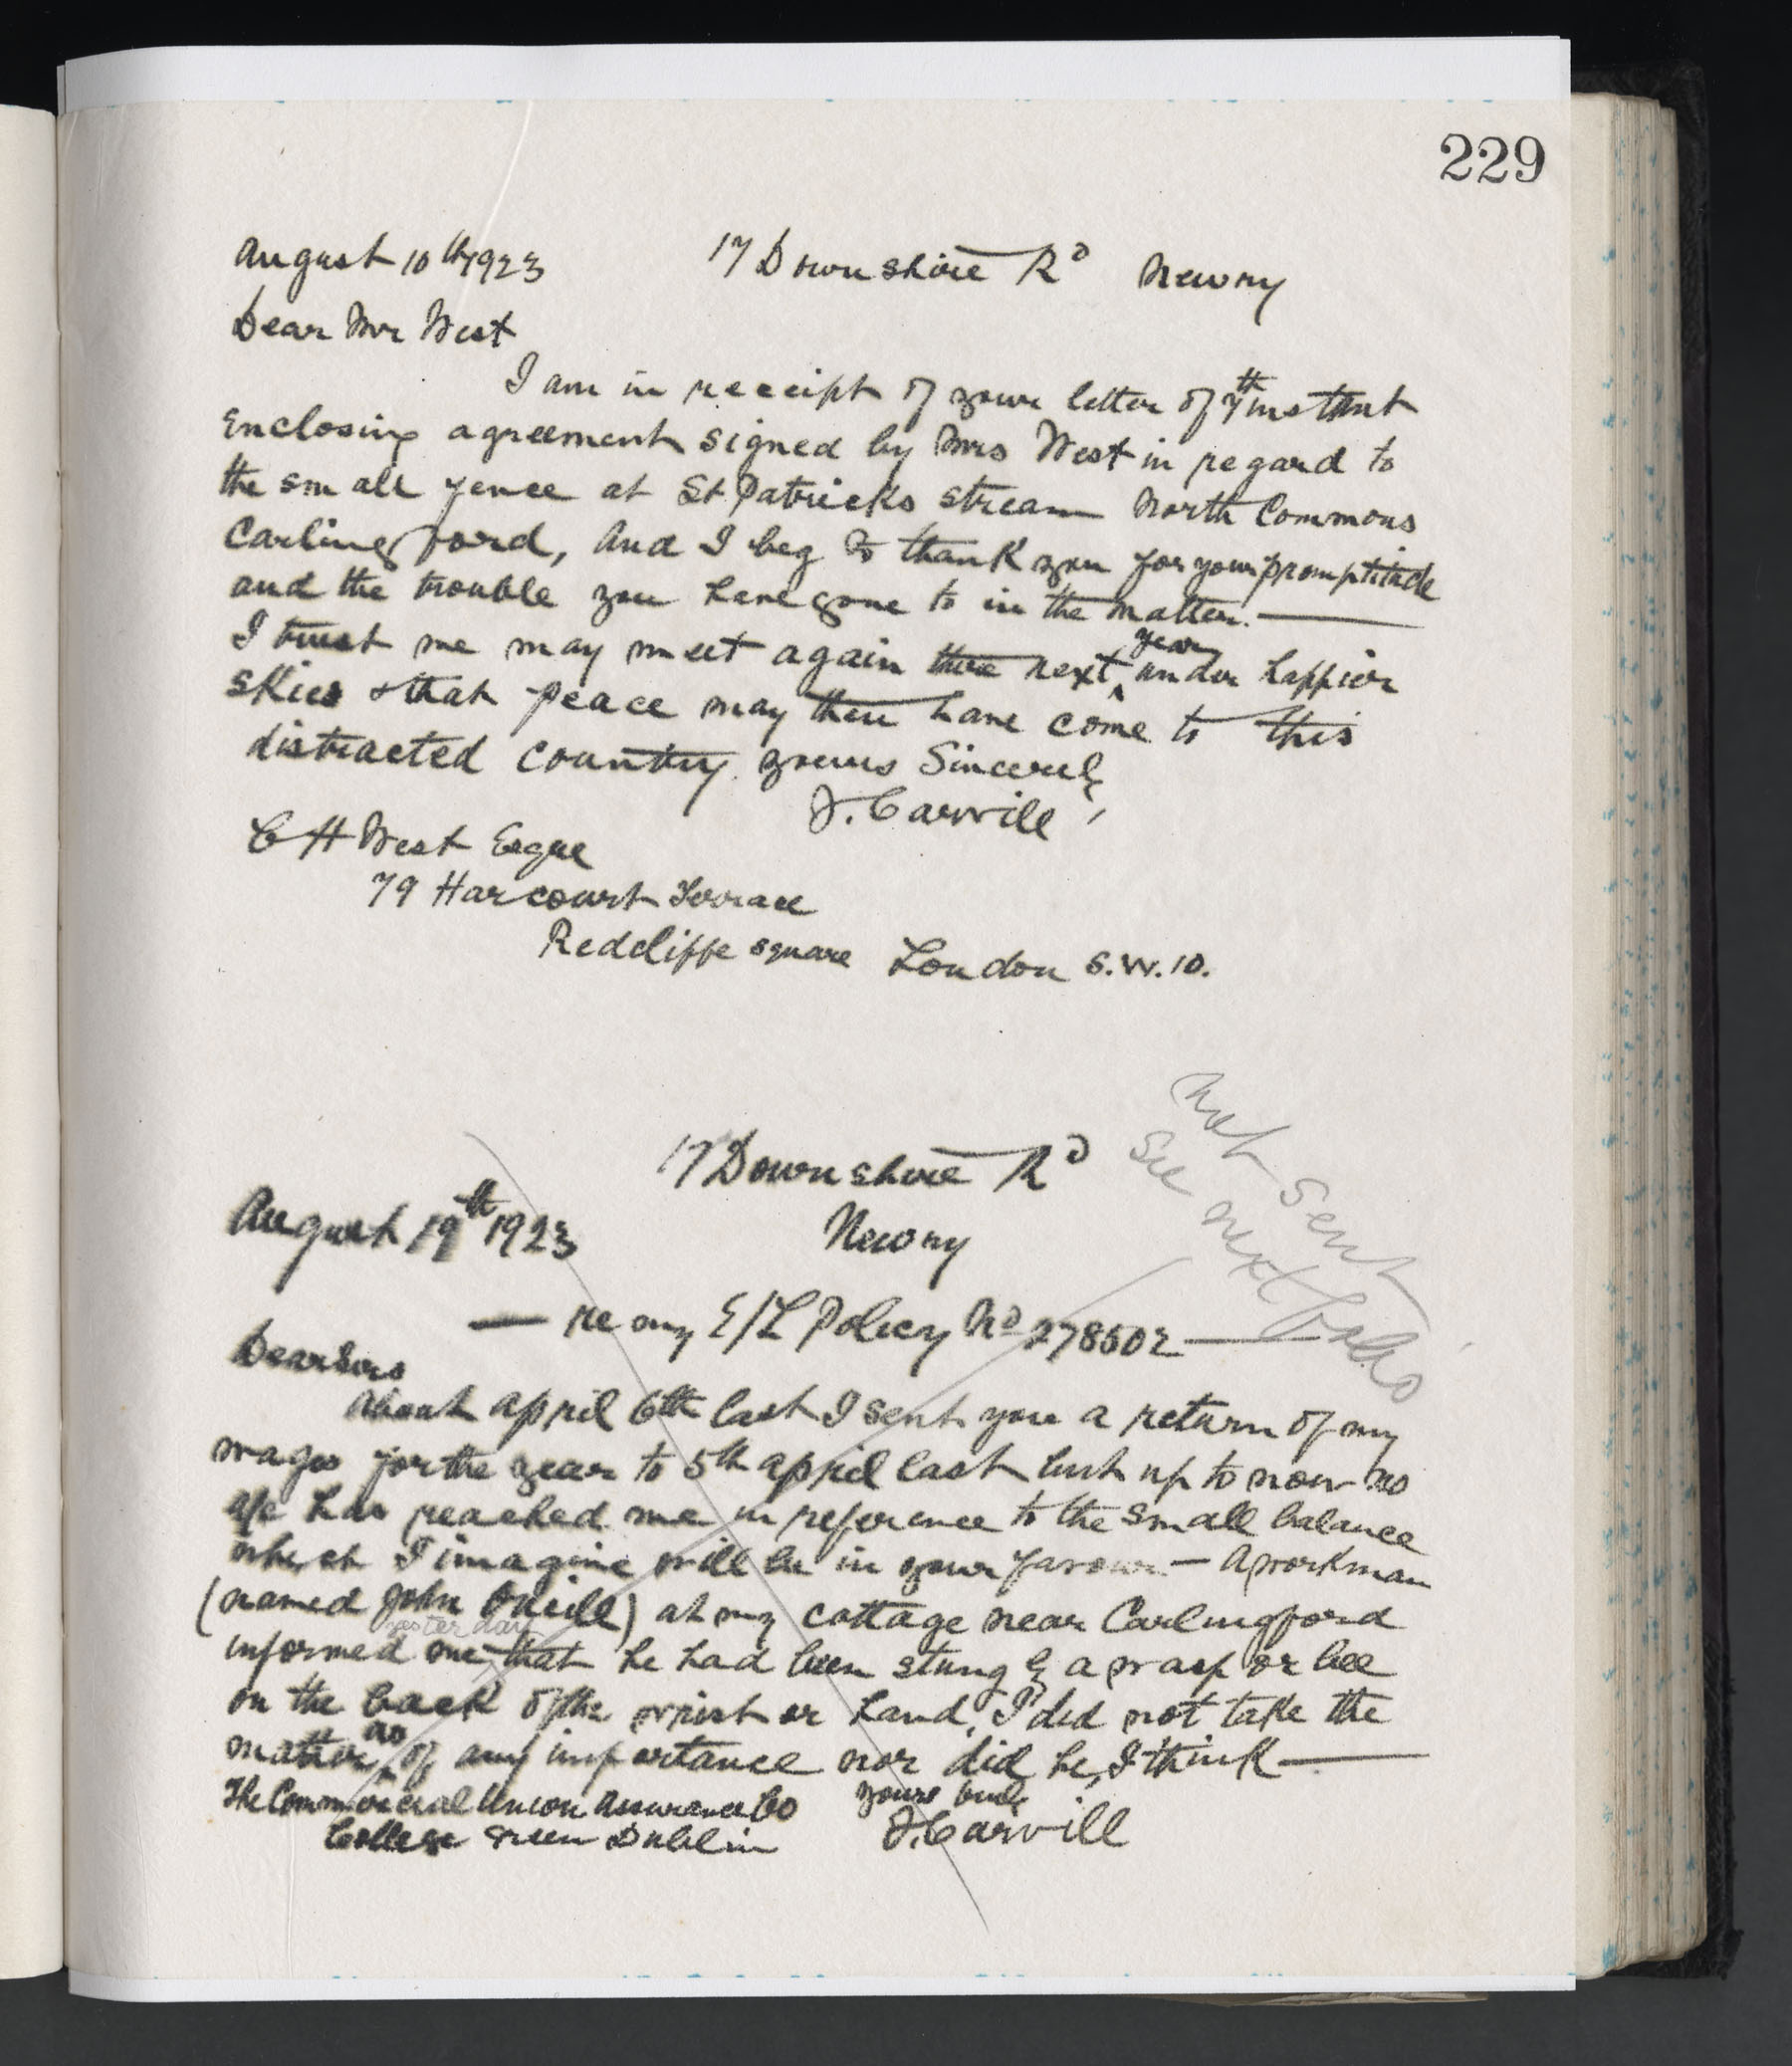 229
August 10th 1923 17 Downshire Rd Newry
Dear Mr West
I am in receipt of your letter of 7th instant
Enclosing agreement signed by Mrs West in regard to
the small fence at St Patricks stream North Commons
Carlingford, and I beg to thank you for your promptitude
and the trouble you have gone to in the matter. —
I trust we may meet again there next year under happier
skies & that peace may then have come to this
distracted country. yours Sincerely
J. Carvill
C H West Esque
79 Harcourt Terrace
Redcliffe square London S.W.10.
not sent
see next folio
17 Downshire Rd
August 19th 1923 Newry
— re my E/L Policy No 278502 —
Dear Sirs
About april 6th last I sent you a return of my
wages for the year to 5th april last but up to now no
a/c has reached me in reference to the small balance
which I imagine will be in your favour — A workman
(named John O'Neill) at my cottage near Carlingford
yesterday
informed me that he had been stung by a wasp or bee
on the back of the wrist or hand, I did not take the
matter as of any importance nor did he, I think —
The Commercial Union Assurance Co yours truly
College Green Dublin J. Carvill